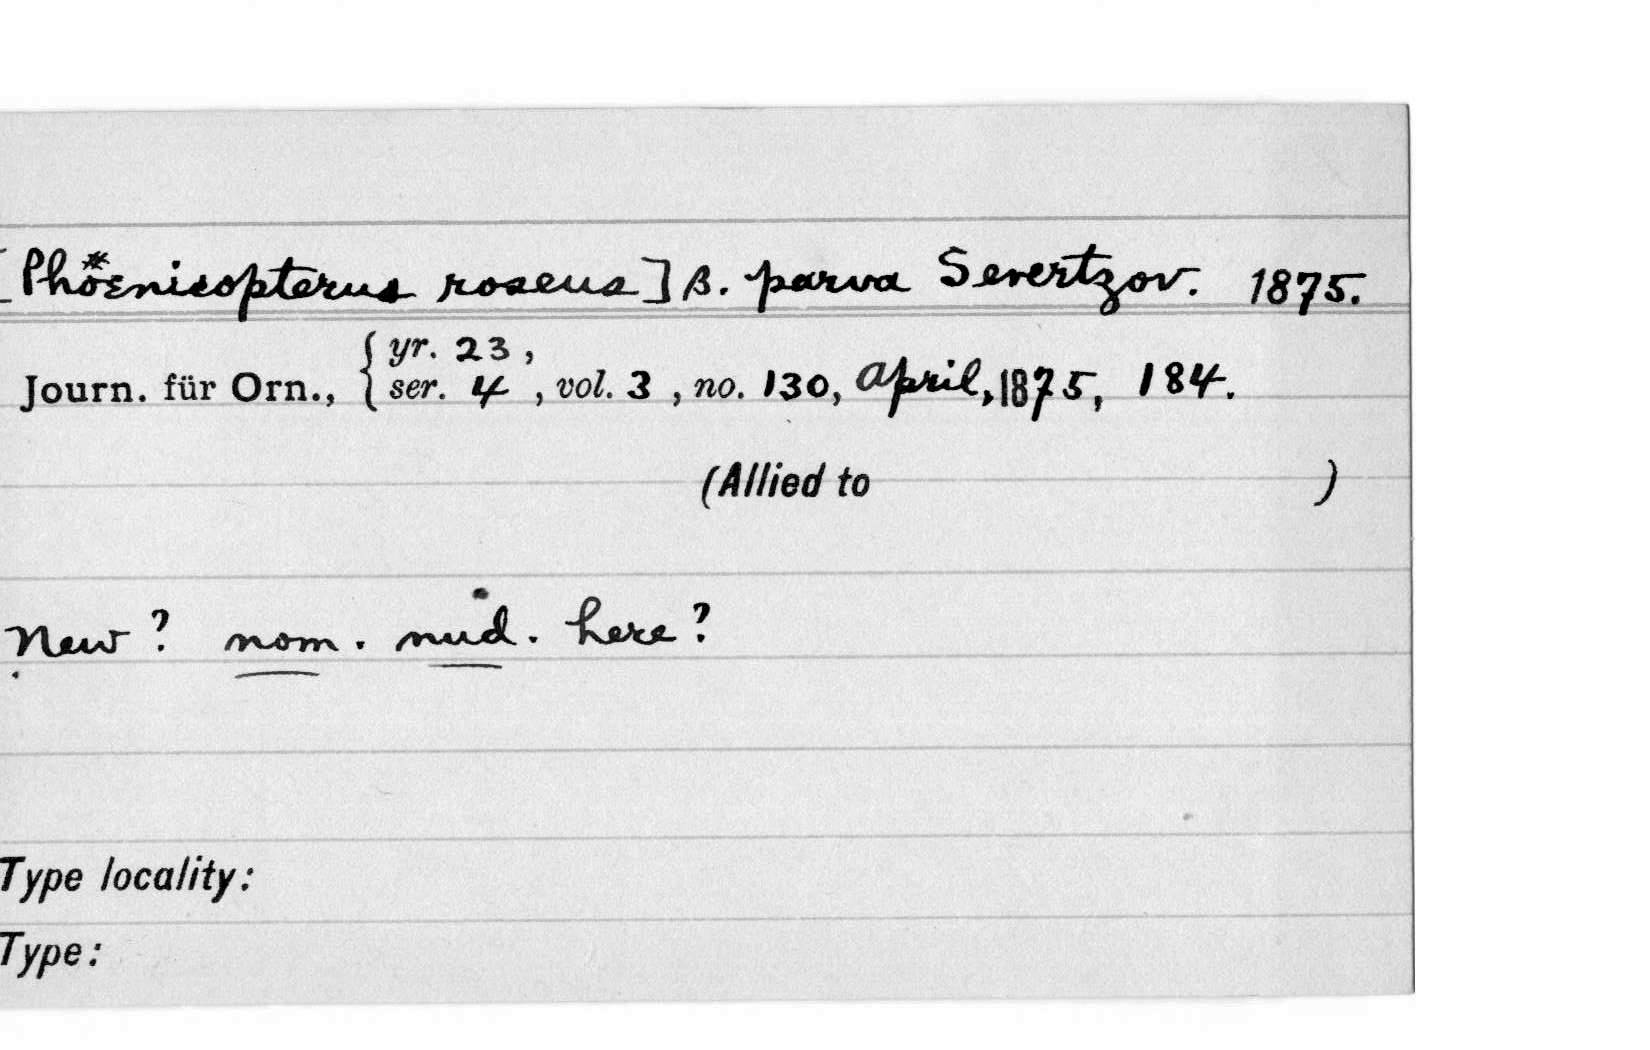 [Phöenicopterus roseus] β. parva Severtzov. 1875.
yr. 23,
Journ. für Orn., { ser. 4, vol. 3, no. 130, April, 1875, 184.
(Allied to )
New? nom. nud. here?
Type locality:
Type: